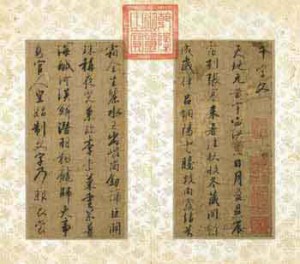 千字文
天地玄黄宇宙洪荒日月盈昃辰
宿列張寒來暑往秋收冬藏閏餘
成歲律呂調陽雲騰致雨露結為
霜金生麗水玉出崑崗劍號巨闕
珠稱夜光菓珍李柰菜重芥薑
海鹹河淡鱗潛羽翔龍師火帝
鳥官人皇始制文字乃服衣裳